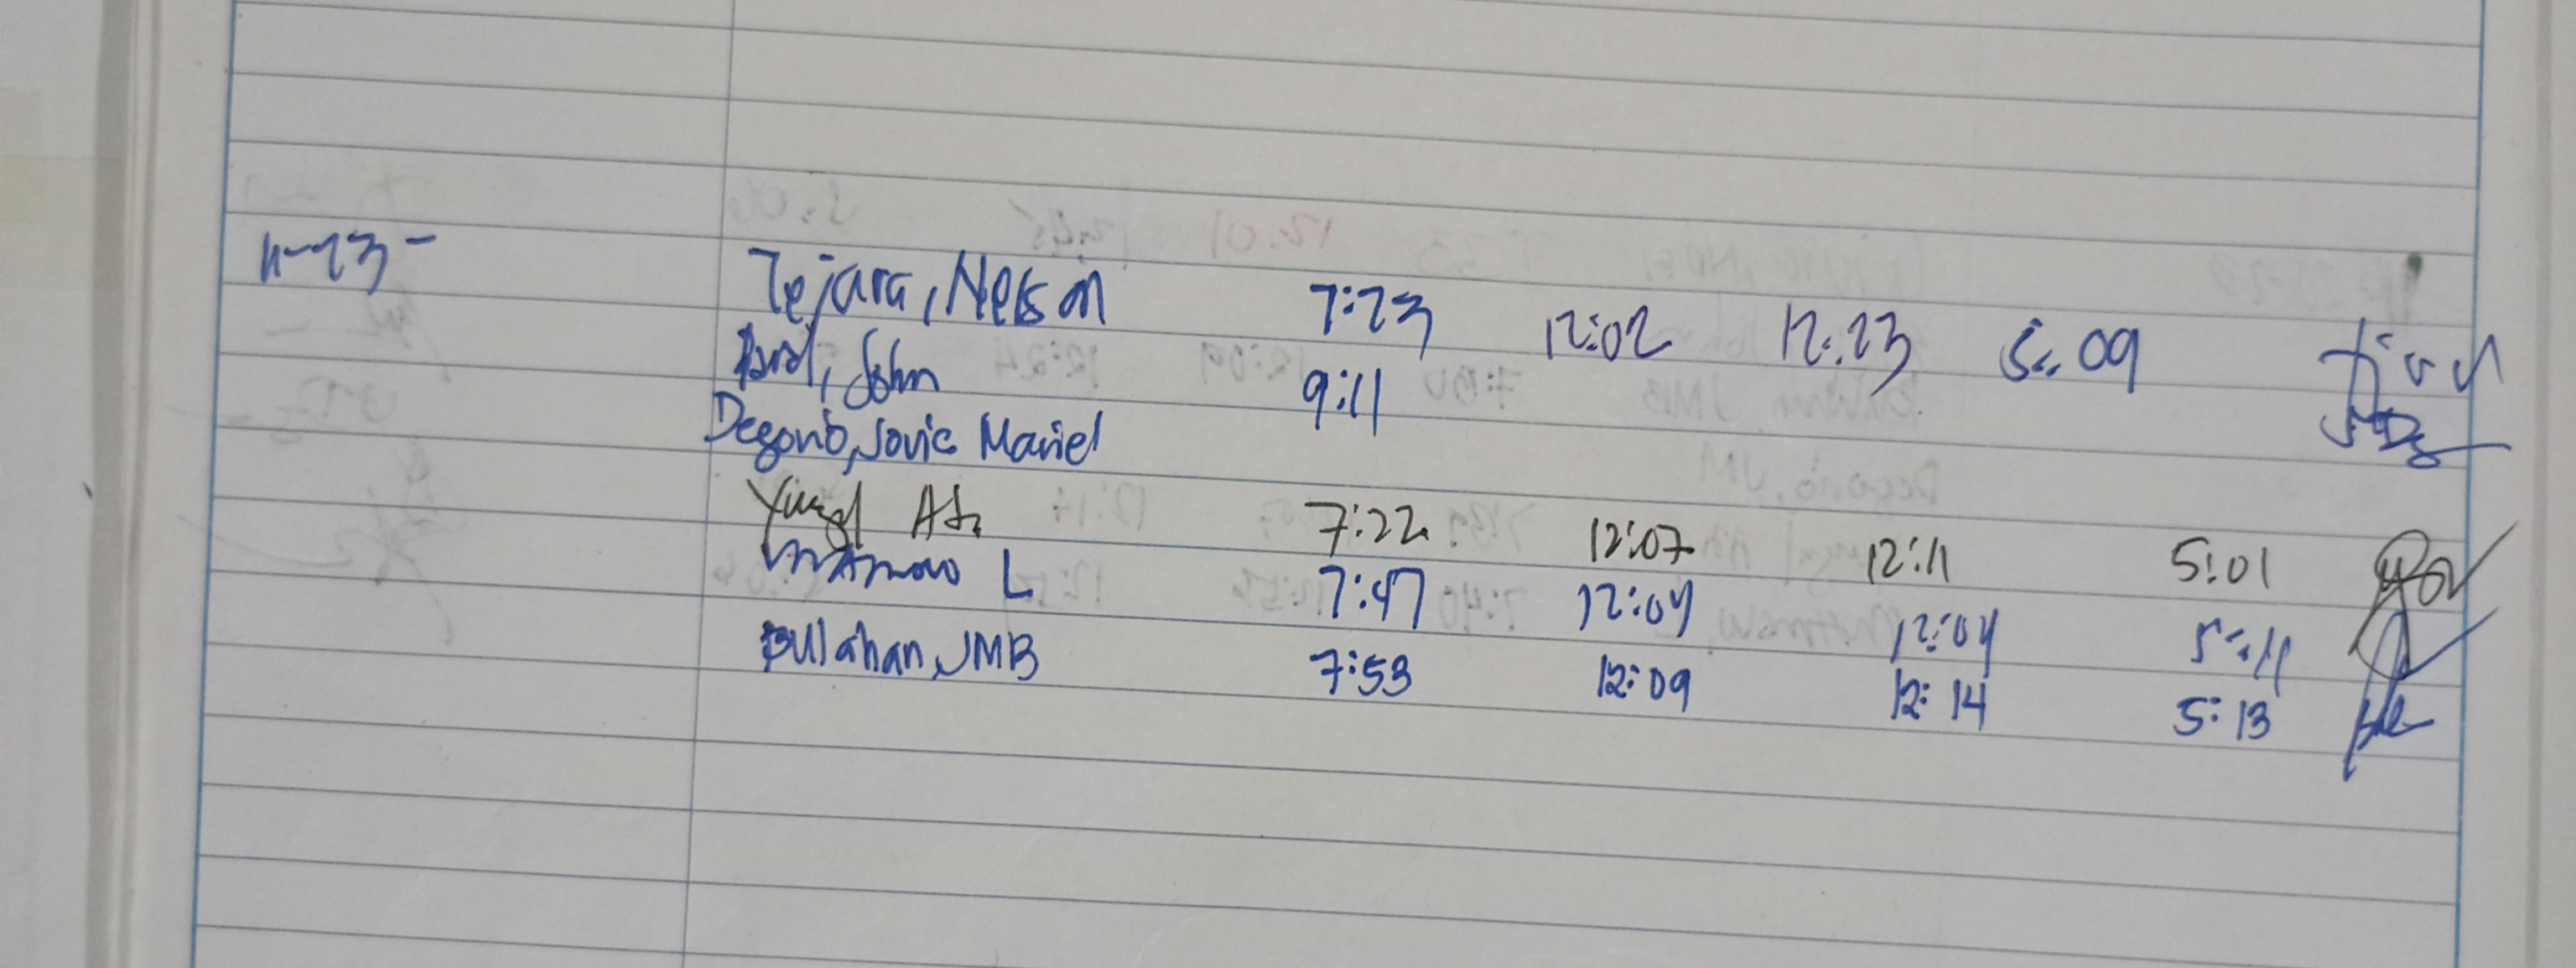 11-23-
Tejara, Nelson 7:23 12:02 12:23 5:09
John 9:11
Degorio, Jovic Mariel
7:22 12:07 12:11 5:01
L 7:47 12:04 12:04 5:11
Bulahan, JMB 7:53 12:09 12:14 5:13